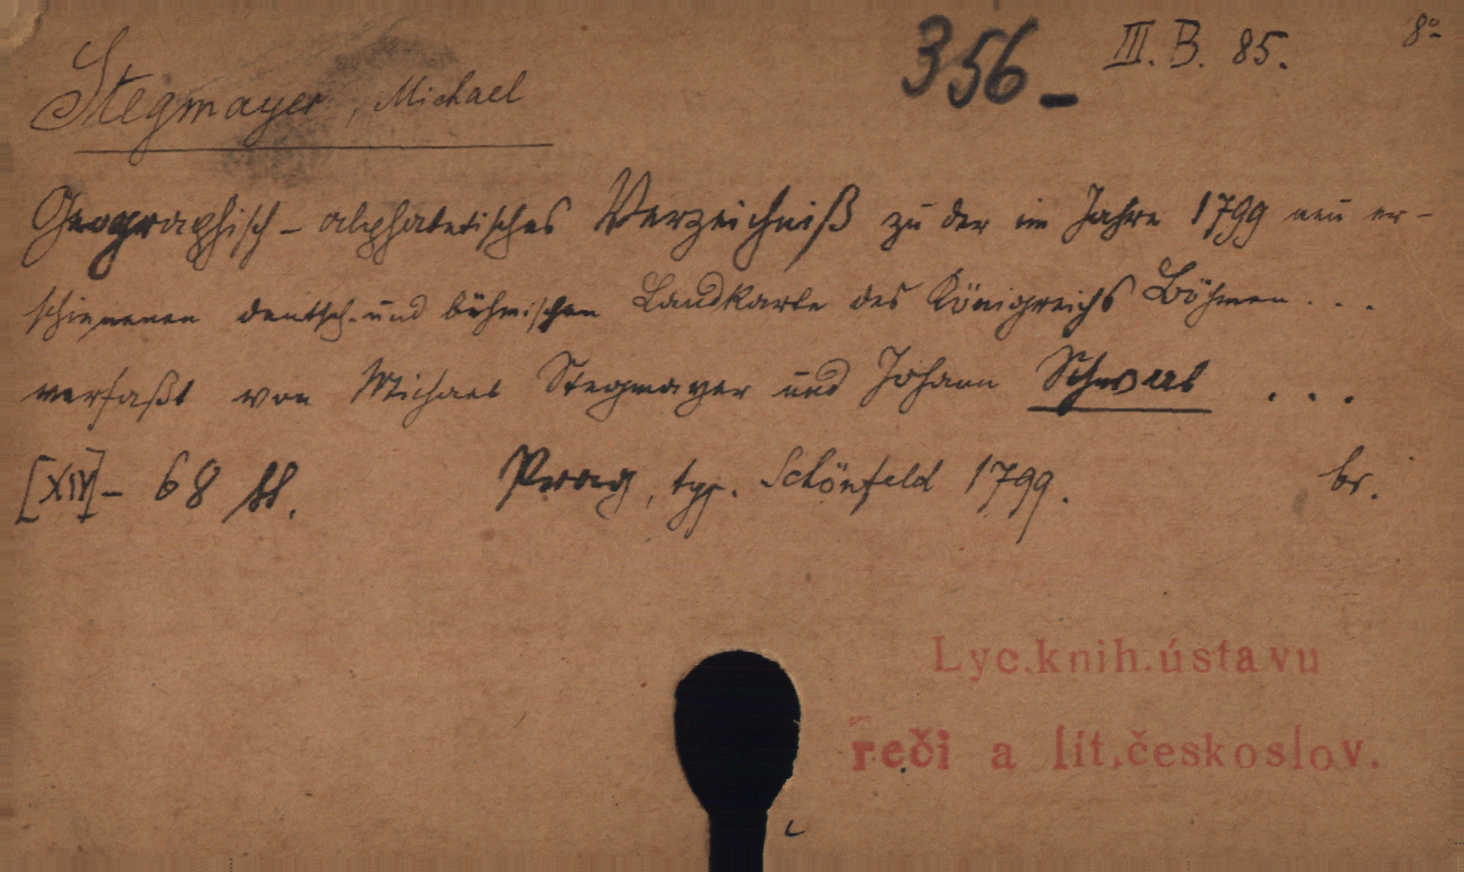 356- III. B. 85. 8º
Stegmayer, Michael
Geographisch-alphabetisches Verzeichniß zu der im Jahre 1799 neu er-
schienenen deutsch- und böhmischen Landkarte des Königreichs Böhmen . . .
verfaßt von Michael Stegmayer und Johann Schwab . . .
[XIV]- 68 ss. Prag, typ. Schönfeld 1799. br.
Lyc.knih.ústavu
řeči a lit.českoslov.